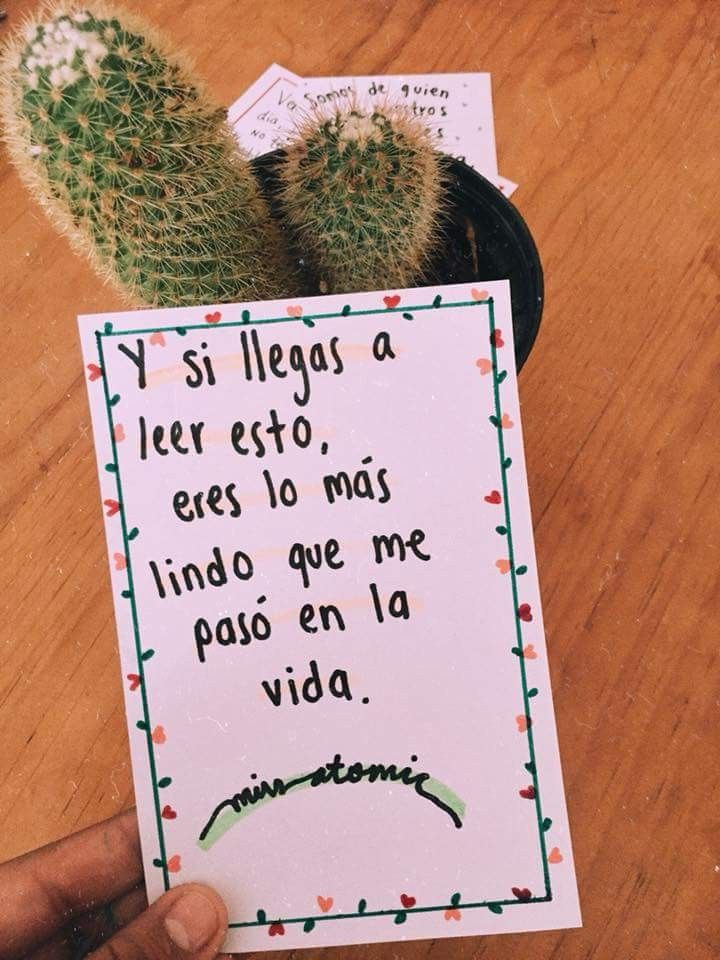 Ya Somos de quien
otros
dia
No
Y si llegas a
leer esto,
eres lo más
lindo que me
pasó en la
vida.
miss atomic